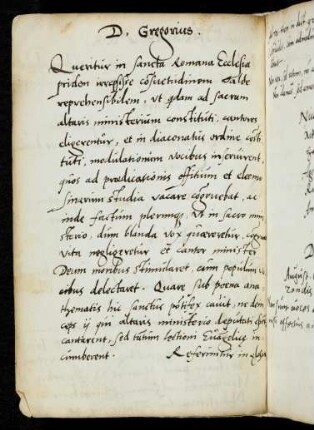 D. Gregorius.
Queritur in sancta Romana Ecclesia
pridem irrepsisse cosuetudinem valde
reprehensibilem, ut qdam ad sacrum
altaris ministerium constituti, cantores
eligerentur, et in diaconatus ordine costi
tuti, modulationem vocibus inservirent,
quos ad prædicationis offitium et elemo
sinarum studia vacare cogruebat, ac
inde factum plerumqz ut in sacro mini
sterio, dum blanda vox quæreretur,
vita negligeretur et cantor minister
Deum moribus stimularet, cum populum vo
cibus delectaret. Quare sub poena ana
thematis hic sanctus potifex cavit, ne dein
ceps ij qui altaris ministerio deputati
cantarent, sed tatum lectioni Euagelicę in
cumberent.
Refermitur in